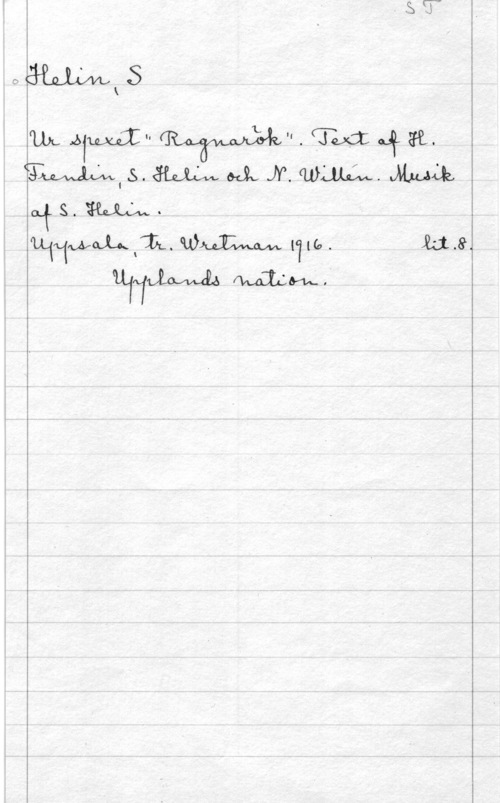 S T
Helin, S
Ur spexet "Ragnarök". Text af H.
Frendin, S. Helin och N. Willén. Musik
af S. Helin.
Uppsala, tr. Wretman 1916. lit.8.
Upplands nation.